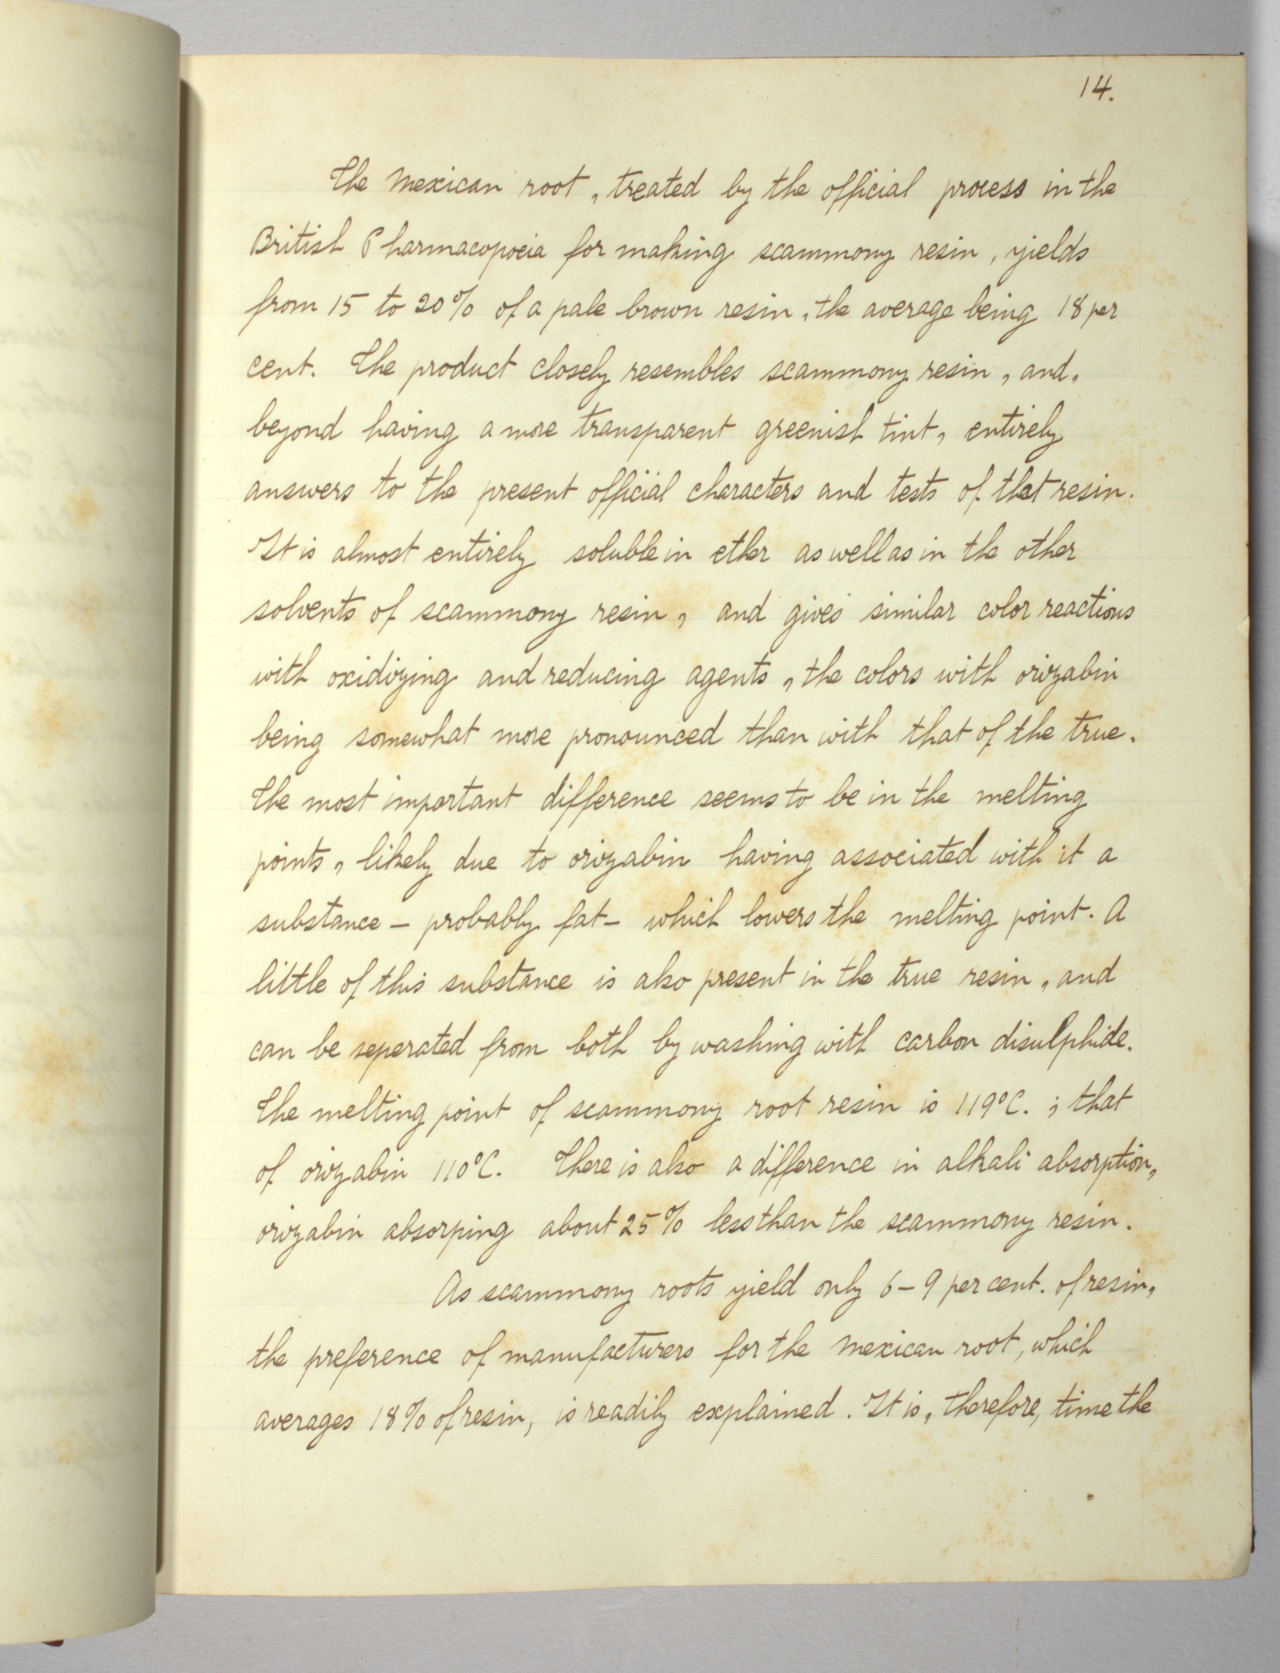 14.
The Mexican root, treated by the official process in the
British Pharmacopoeia for making scammony resin, yields
from 15 to 20% of a pale brown resin, the average being 18 per
cent. The product closely resembles scammony resin, and,
beyond having a more transparent greenish tint, entirely
answers to the present official characters and tests of that resin.
It is almost entirely soluble in ether as well as in the other
solvents of scammony resin, and gives similar color reactions
with oxidizing and reducing agents, the colors with orizabin
being somewhat more pronounced than with that of the true.
The most important difference seems to be in the melting
points, likely due to orizabin having associated with it a
substance – probably fat – which lowers the melting point. A
little of this substance is also present in the true resin, and
can be seperated from both by washing with carbon disulphide.
The melting point of scammony root resin is 119°C. ; that
of orizabin 110°C. There is also a difference in alkali absorption,
orizabin absorping about 25% less than the scammony resin.
As scammony roots yield only 6–9 per cent. of resin,
the preference of manufacturers for the Mexican root, which
averages 18% of resin, is readily explained. It is, therefore, time the